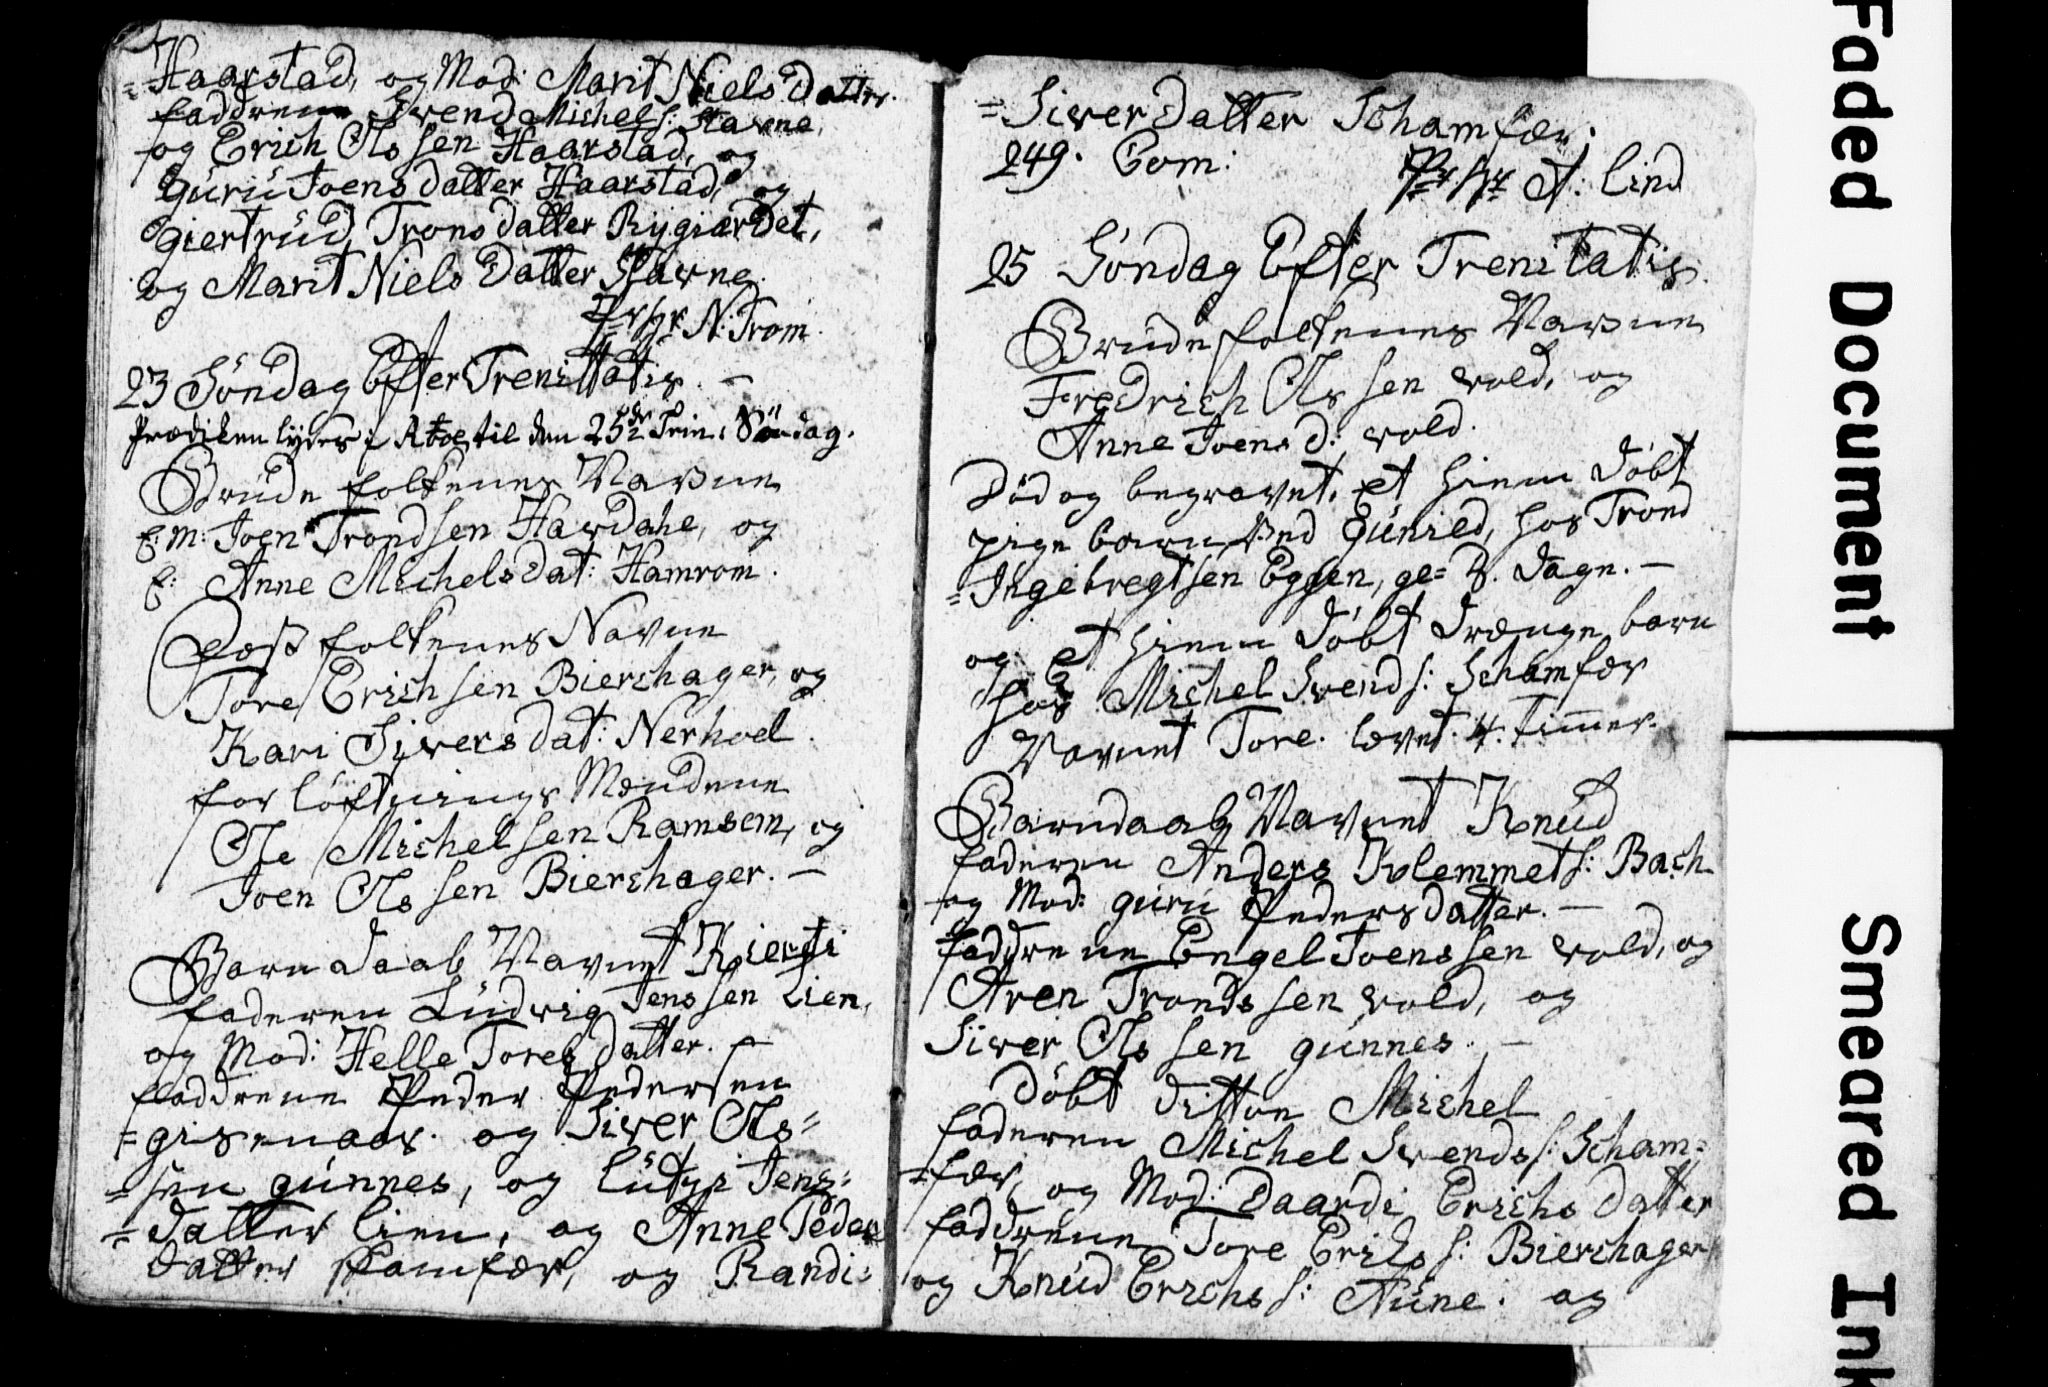 = Haarstad, og Mod: Marit Niels Datter.
faddrene Svend Michels: Stavne,
og Erich Ols sen Haarstad, og
Guru Joens datter Haarstad, og
giertrud Trons datter Rygiærdet,
og Marit Niels Datter Stavne.
N: Trom.
23 Söndag Efter Trenittatis. —
Prædiken lyder i til den 25de Trin: Söndag.
Brude folkenes Navne
E: M: Joen Trondsen Havdahl, og
E: Anne Michelsdat: Hamrom.
Fæste folkenes Navne
Tore Erichsen Bierchager, og
Kari Sivers dat: Nerhoel.
for löftnings Mændene
Ole Michelsen Ramsem, og
Joen Ols sen Bierchager. —
Barn daab Navnet Kiersti
faderen Ludvig Jenssen Lien,
og Mod: Helle Tores datter. —
faddrene Peder Pedersen
= grisenaas. og Siver Ols=
= sen günnes, og Jens=
= datter lien, og Anne Peder
datter Skamfær, og Randi=
= Siver Datter Schamfær.
249. Com:
Pr Hr A: Lind
25 Söndag Efter Trenitatis.
Brude folkenes Navne
Fredrich Ols sen vold, og
Anne Joens d: vold.
Död og begravet, et hiem döbt
pige barn ved Günild, hos Trond
= Ingebregtsen Eggen, ge= 3. Dage. —
og Et hiem döbt Drænge barn
hos Michel Svends: Schamfær
Navnet Tore. levet. 4. Timer.
Barndaab Navnet Knud
faderen Anders Klemmets: Bach
og Mod: guru Pedersdatter. —
faddrene Engel Joenssen vold, og
Aren Tronds sen vold, og
Siver Ols sen günnes. —
Döbt ditto Michel
faderen Michel Svends s: Scham=
= fær, og Mod: Daardi Erichs datter
faddrene Tore Erichs s: Bierchager
og Knud Erichs s: Aune. og
Faded Document
Smeared Ink